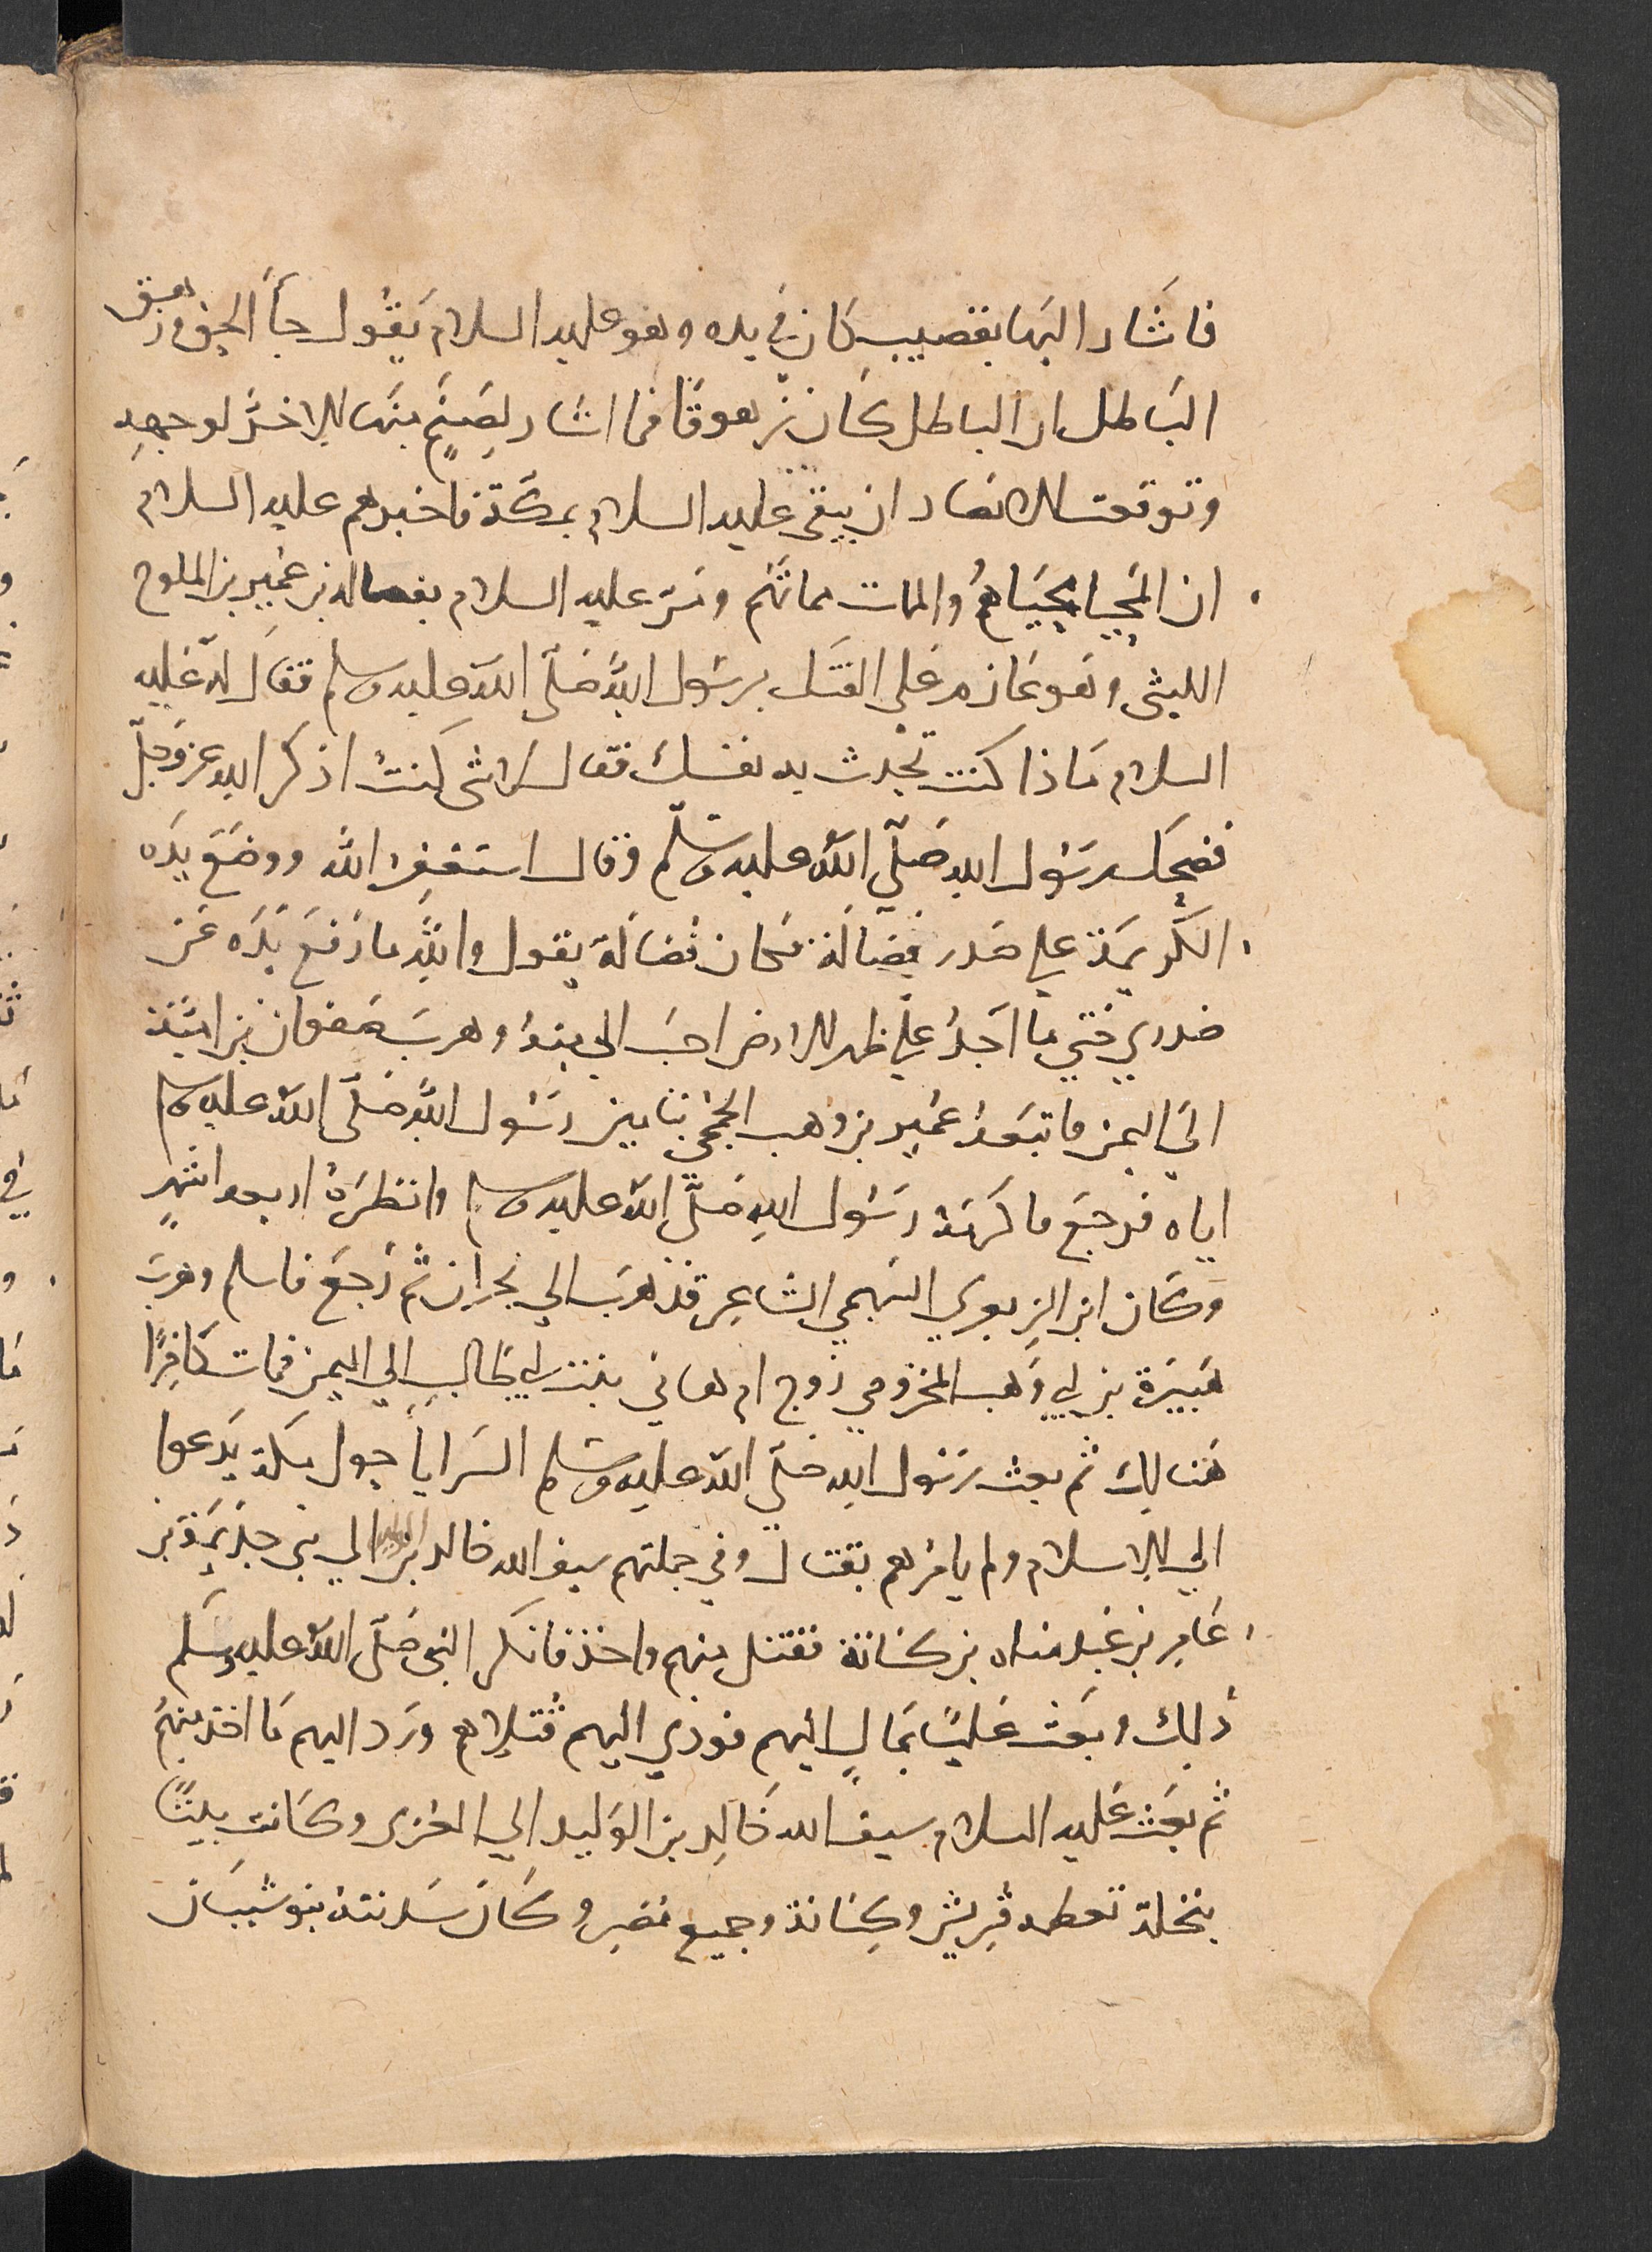 فاشار اليها بقضيب كان في يده وهو عليه السلام يقول جأ الحق وزهق
الباطل ان الباطل كان زهوقا فما اشار لصنم منها الا خر لوجهه
وتوقعت الانصار ان يبقى عليه السلام بمكة فاخبرهم عليه السلام
ان المحيا محياهم والممات مماتهم ومر عليه السلام بفضالة بن عمير بن الملوح
الليثي وهو عازم على الفتك برسول الله صلى الله عليه وسلم فقال له عليه
السلام ماذا كنت تحدث به نفسك فقال لا شي كنت اذكر الله عز وجل
فضحك رسول الله صلي الله عليه وسلم وقال استغفر الله ووضع يده
الكريمة علي صدر فضالة فكان فضالة يقول والله ما رفع يده عن
صدري حتي ما اجد علي ظهر الارض احب الي منه وهرب صفوان بن امية
الي اليمن فاتبعه عمير بن وهب الجمحي بتامين رسول الله صلى الله عليه وسلم
اياه فرجع فاكرمه رسول الله صلى الله عليه وسلم وانظره اربعه اشهر
وكان ابن الزبعري السهمي الشاعر قد هرب الي نجران ثم رجع فاسلم وهرب
هبيرة بن ابي وهب المخزومي زوج ام هاني بنت ابي طالب الي اليمن فمات كافرا
هنالك ثم بعث رسول الله صلي الله عليه وسلم السرايا حول مكة يدعوا
الي الاسلام ولم يامرهم بقتال وفي جملتهم سيف الله خالد بن الوليد الي بني جذيمة بن
عامر بن عبد مناه بن كنانة فقتل منهم واخذ فانكر النبي صلى الله عليه وسلم
ذلك وبعث عليا بمال اليهم فودي اليهم قتلاهم ورد اليهم ما اخذ منهم
ثم بعث عليه السلام سيف الله خالد بن الوليد الي العزى وكانت بيتا
بنخلة تعظمه قريش وكنانة وجميع مضر وكان سدنته بنو شيبان